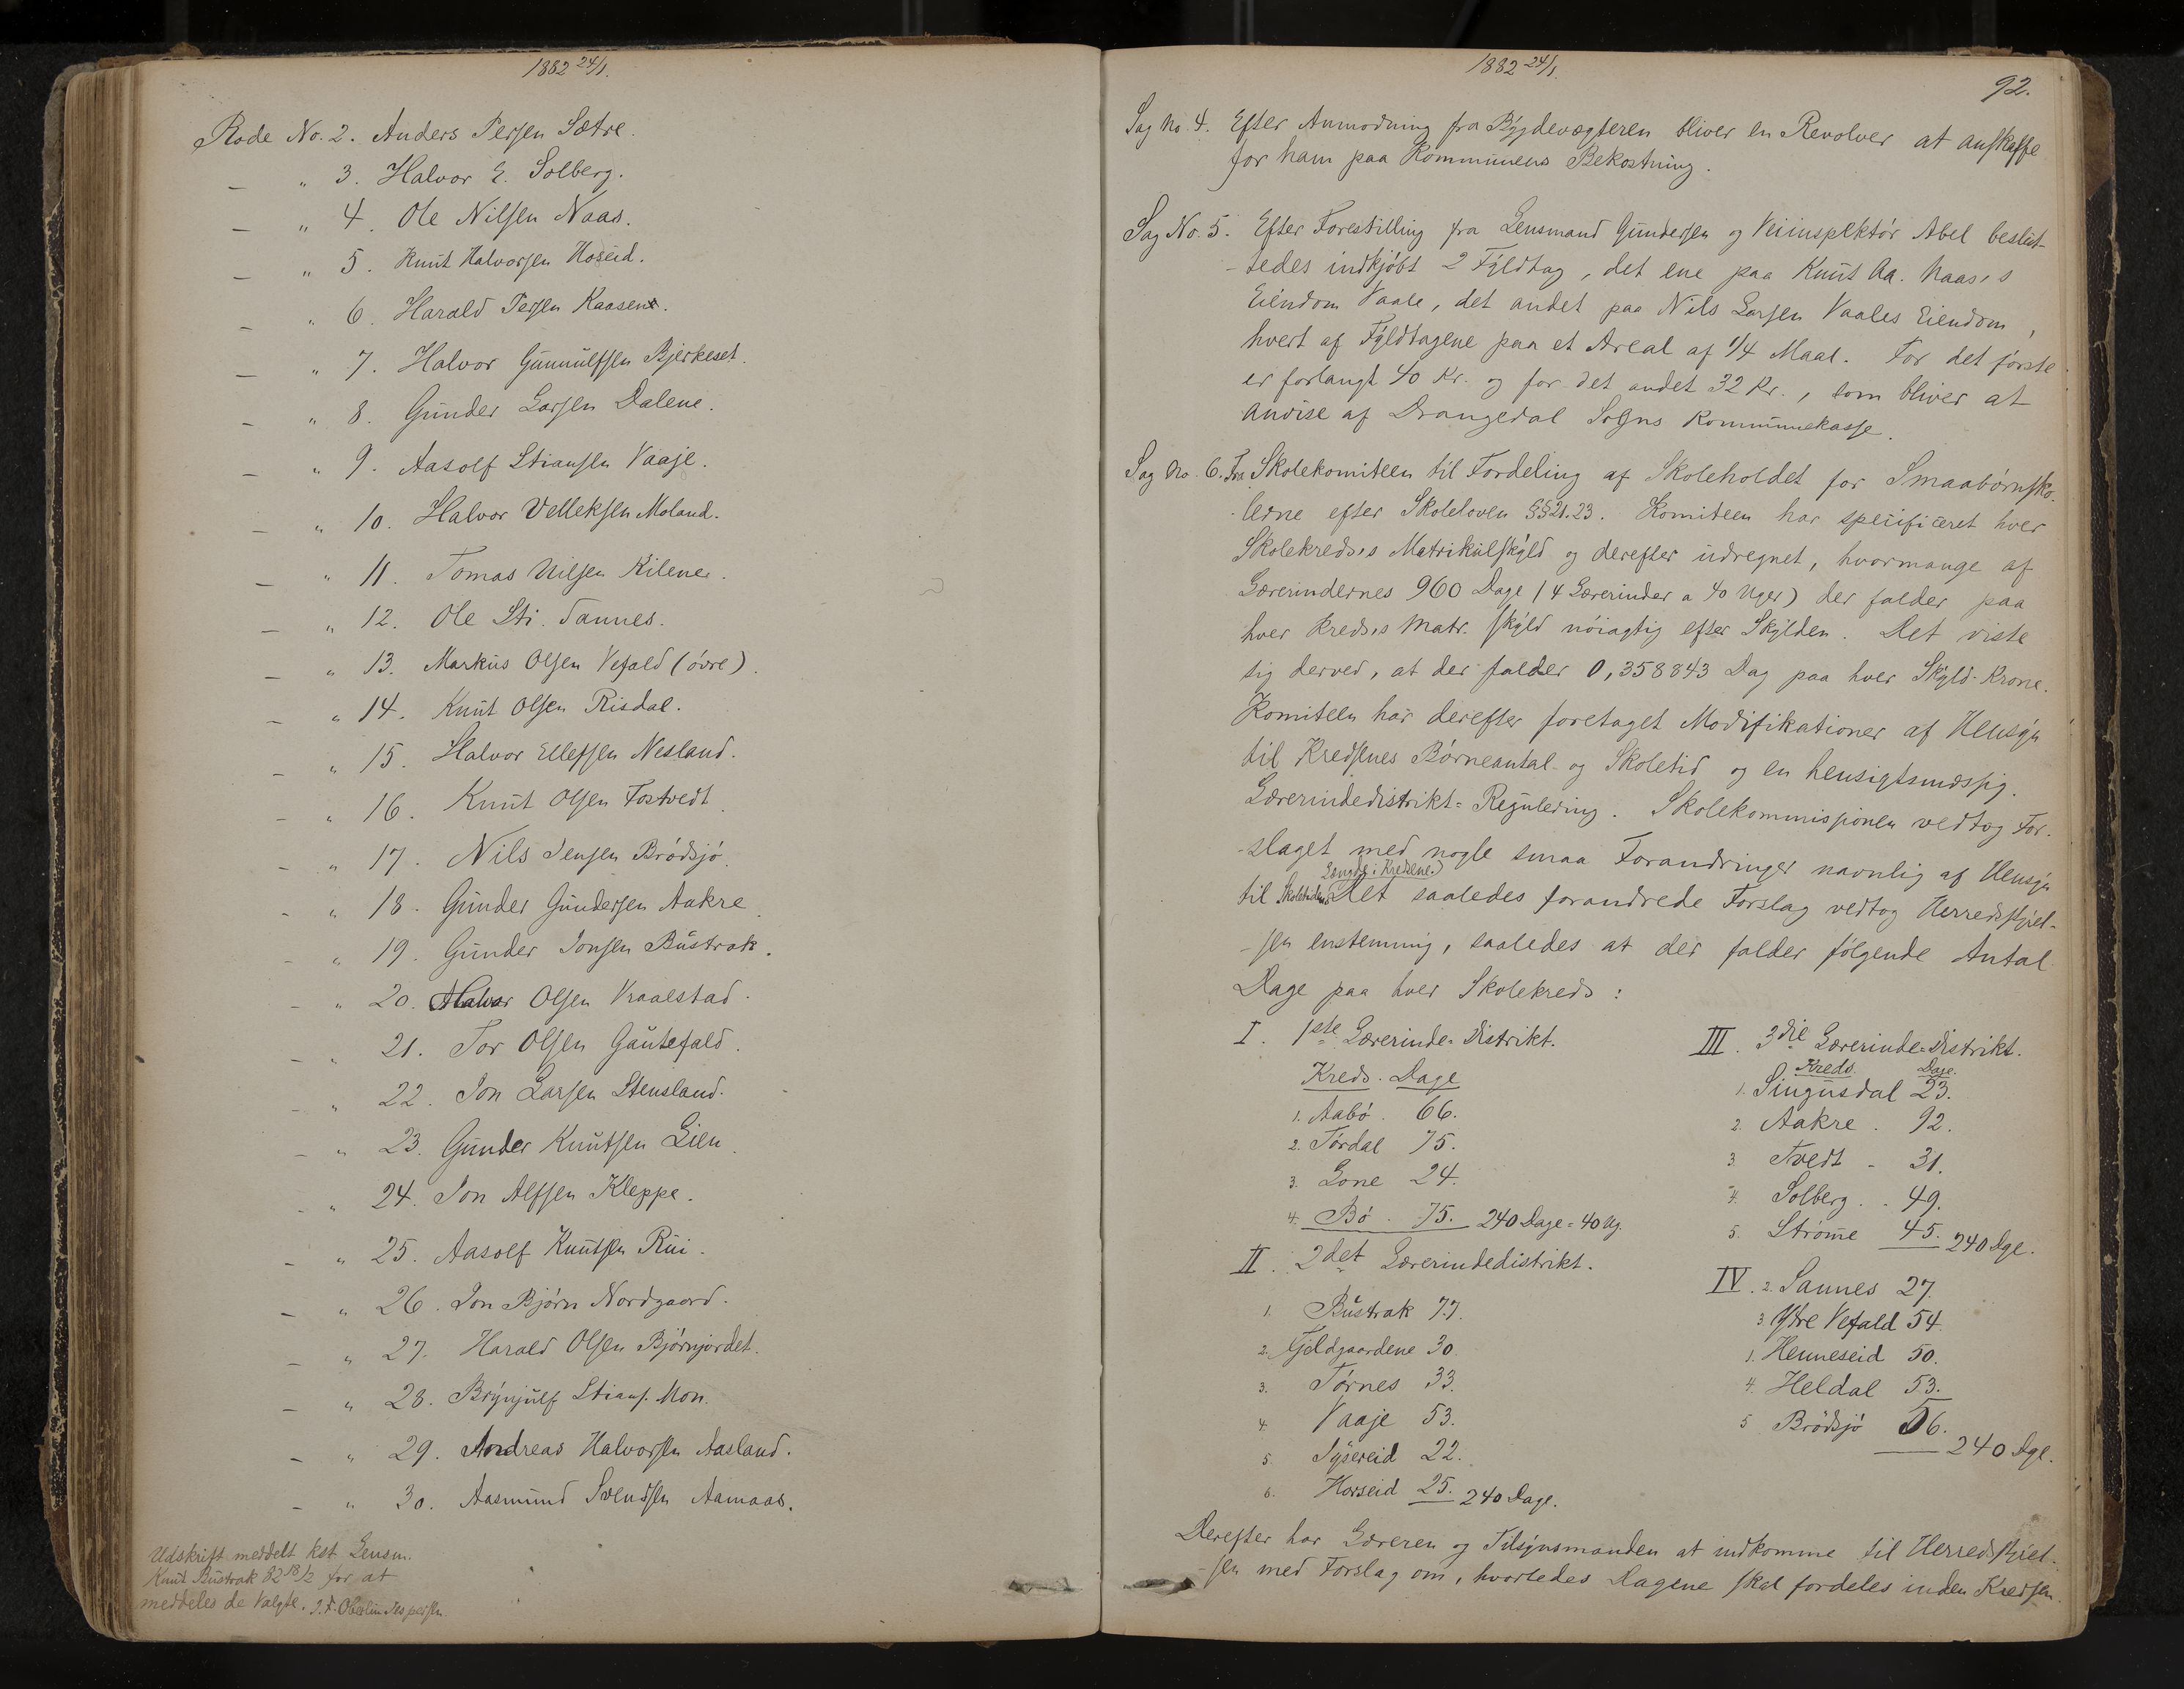 1882 24/1.
Rode No. 2. Anders Persen Sætre.
— " 3. Halvor E. Solberg.
— " 4. Ole Nilsen Naas.
— " 5. Knut Halvorsen Hoseid.
— " 6. Harald Persen Kaasene.
— " 7. Halvor Gunnulfsen Bjerkeset.
— " 8. Gunder Larsen Dalene.
— " 9. Aasolf Stiansen Vaaje.
— " 10. Halvor Velleksen Moland.
— " 11. Tomas Nilsen Kilene.
— " 12. Ole Sti. Sannes.
— " 13. Markus Olsen Vefald (övre).
— " 14. Knut Olsen Risdal.
— " 15. Halvor Ellefsen Nesland.
— " 16. Knut Olsen Tostvedt.
— " 17. Nils Jensen Brødsjø.
— " 18. Gunder Gundersen Aakre.
— " 19. Gunder Jonsen Bustrak.
— " 20. Halvor Olsen Vraalstad.
— " 21. Tor Olsen Gautefald.
— " 22. Jon Larsen Stensland.
— " 23. Gunder Knutsen Lien.
— " 24. Jon Alfsen Kleppe.
— " 25. Aasolf Knutsen Rui.
— " 26. Jon Bjørn Nordgaard.
— " 27. Harald Olsen Bjørnjordet.
— " 28. Brynjulf Stians. Mon.
— " 29. Andreas Halvorsen Aasland.
— " 30. Aasmund Svendsen Aamaas.
Udskrift meddelt kst. Lensm.
Knut Bustrak 82 18/2 for at
meddeles de Valgte. J. F. Oberlin Jespersen.
1882 24/1.
92.
Sag No. 4. Efter Anmodning fra Bygdevægteren bliver en Revolver at anskaffe
for ham paa Kommunens Bekostning.
Sag No. 5. Efter Forestilling fra Lensmand Gundersen og Veiinspektør Abel beslut-
-tedes indkjøbt 2 Fyldtag, det ene paa Knut Aa. Naas's
Eiendom Vaale, det andet paa Nils Larsen Vaales Eiendom,
hvert af Fyldtagene paa et Areal af 1/4 Maal. For det første
er forlangt 40 Kr. og for det andet 32 Kr., som bliver at
anvise af Drangedal Sogns Kommunekasse.
Sag No. 6. Fra Skolekomiteen til Fordeling af Skoleholdet for Smaabørnsko-
-lerne efter Skoleloven §§ 21.23. Komiteen har specificeret hver
Skolekreds's Matrikulskyld og derefter udregnet, hvormange af
Lærerindernes 960 Dage (4 Lærerinder a 40 Uger) der falder paa
hver Kreds's Matr. skyld nøiagtig efter Skylden. Det viste
sig derved, at der falder 0,358843 Dag paa hver Skyld-Krone.
Komiteen har derefter foretaget Modifikationer af Hensyn
til Kredsenes Børneantal og Skoletid og en hensigtsmæssig.
Lærerindedistrikt-Regulering. Skolekommissionen vedtog For-
-slaget med nogle smaa Forandringer navnlig af Hensyn
Længde i Kredsene.)
til Skoletidens Det saaledes forandrede Forslag vedtog Herredsstyrel-
-sen enstemmig, saaledes at der falder følgende Antal
Dage paa hver Skolekreds:
I. 1ste Lærerinde-Distrikt.
Kreds. Dage
1. Aabø. 66.
2. Tørdal 75.
3. Lone 24.
4. Bø. 75. 240 Dage = 40 Ug.
II. 2det Lærerindedistrikt.
1. Bustrak 77.
2. Fjeldgaardene 30.
3. Tørnes 33.
4. Vaaje 53.
5. Sysereid 22.
6. Horseid 25. 240 Dage.
III. 3die Lærerinde-Distrikt.
Kreds. Dage.
1. Singusdal 23.
2. Aakre. 92.
3. Tvedt - 31.
4. Solberg. . 49.
5. Strømme 45. 240 Dge.
IV. 2. Sannes 27.
3. Ytre Vefald 54.
1. Henneseid 50.
4. Heldal 53.
5 Brødsjø 56.
240 Dge.
Derefter har Læreren og Tilsynsmanden at indkomme til Herredsstyrel-
-sen med Forslag om, hvorledes Dagene skal fordeles inden Kredsen.